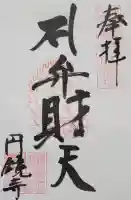 奉拝
弁財天
円鏡寺